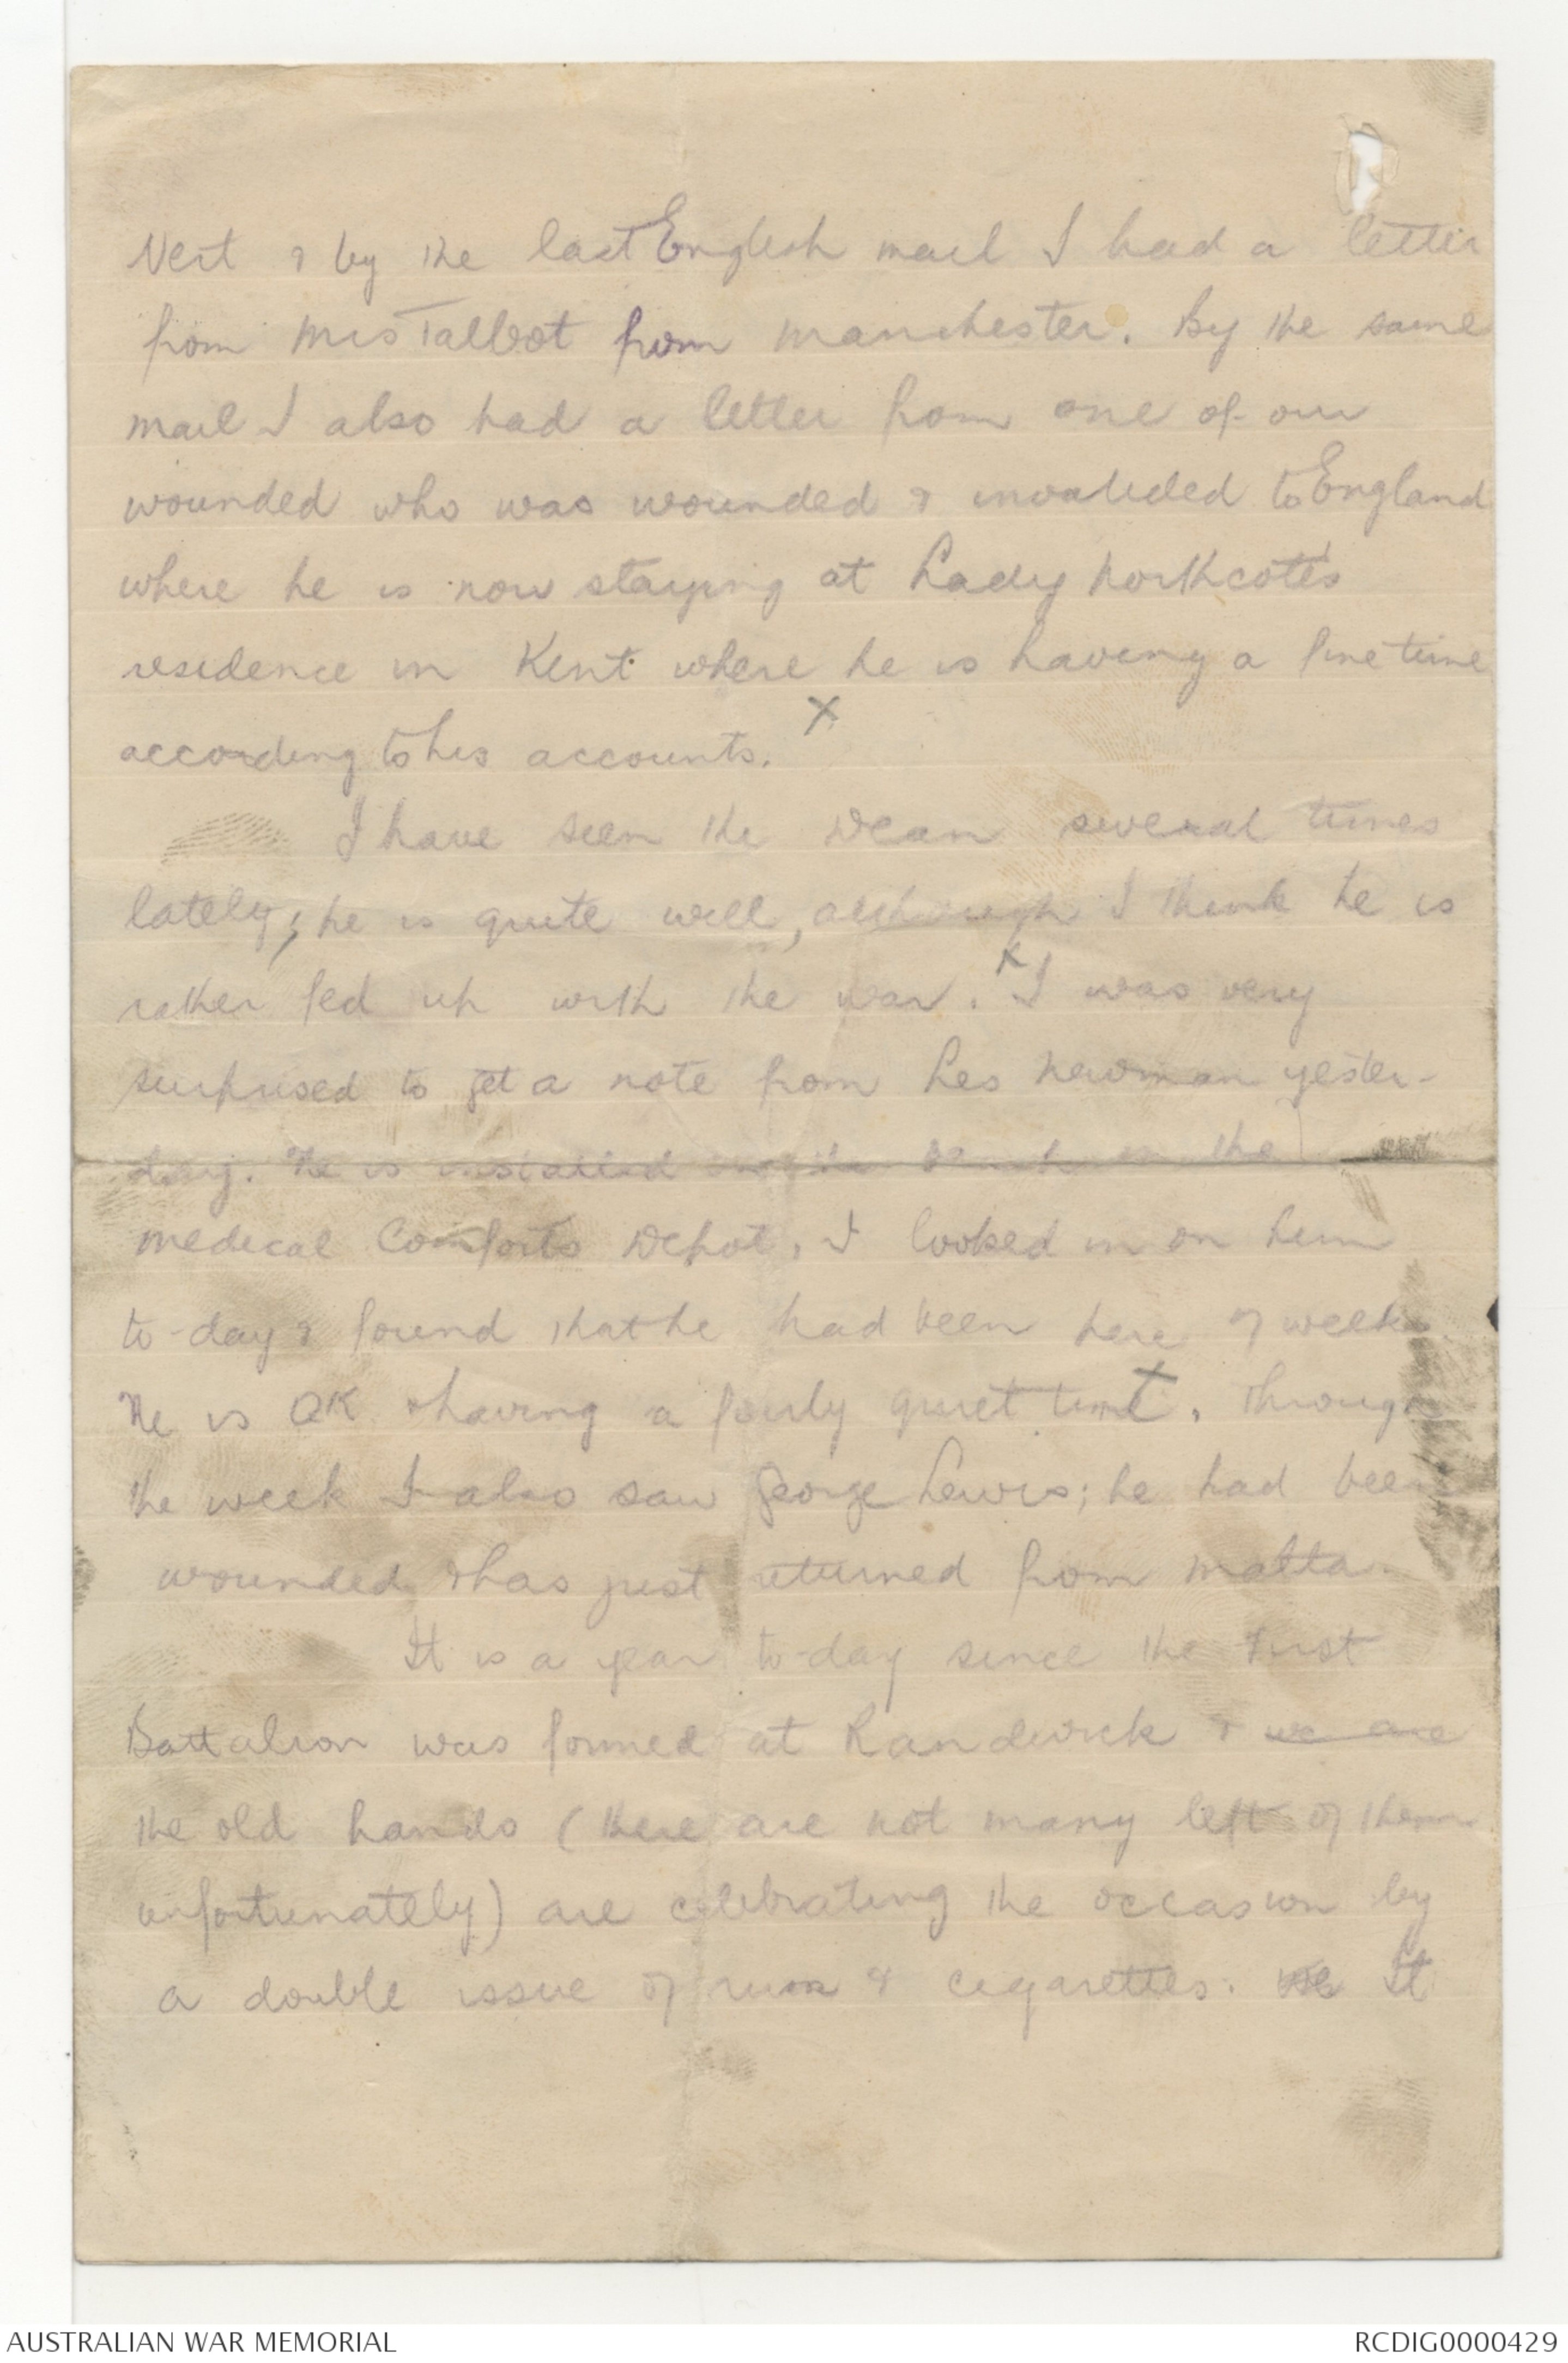 Vert & by the last English mail I had a letter
from Mrs Talbot from Manchester. By the same
mail I also had a letter from one of our
wounded who was wounded & invalided to England
where he is now staying at Lady Northcote's
residence in Kent where he is having a fine time
according to his accounts. X
I have seen the Dean several times
lately; he is quite well, although I think he is
rather fed up with the war. X I was very
surprised to get a note from Les Newman yester-
day. He is installed on the beach in the
Medical Comforts Depot, I looked in on him
to-day & found that he had been here 7 weeks
He is OK & having a fairly quiet time. Through
the week I also saw George Lewis; he had been
wounded & has just returned from Malta.
It is a year to-day since the First
Battalion was formed at Randwick & we are
the old hands (there are not many left of them
unfortunately) are celebrating the occasion by
a double issue of rum & cigarettes. It
AUSTRALIAN WAR MEMORIAL
RCDIG0000429